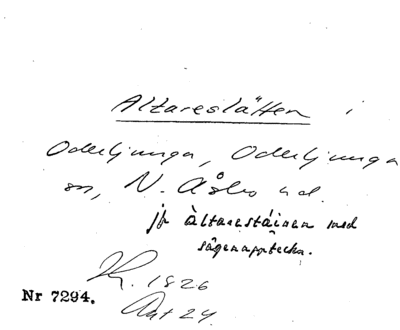 Altareslätten i
Oderljunga, Oderljunga
sn, N. Åsbo hd.
jfr àltarestáinen med
sägenuppteckn.
1926
Nr 7294.